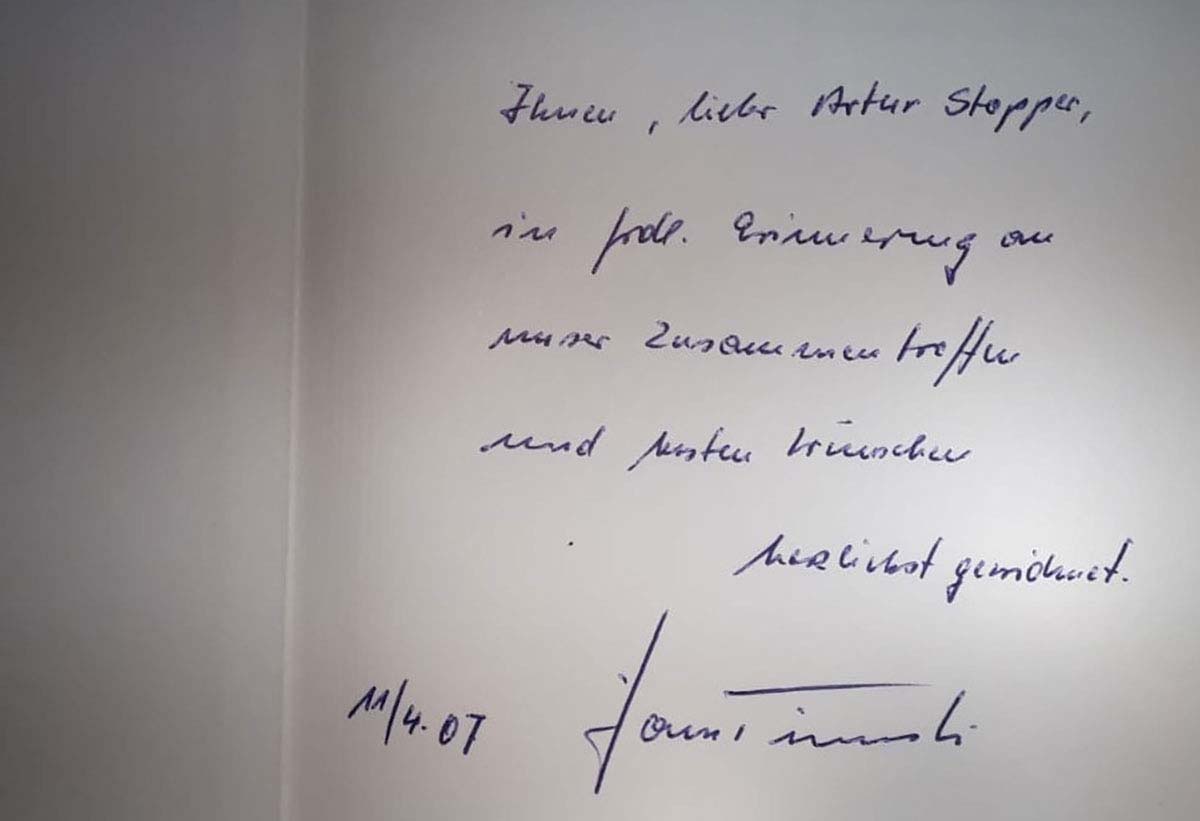 Ihnen, lieber Artur Stopper,
in frdl. Erinnerung an
unser Zusammentreffen
und besten Wünschen
herzlichst gewidmet.
11/4.07